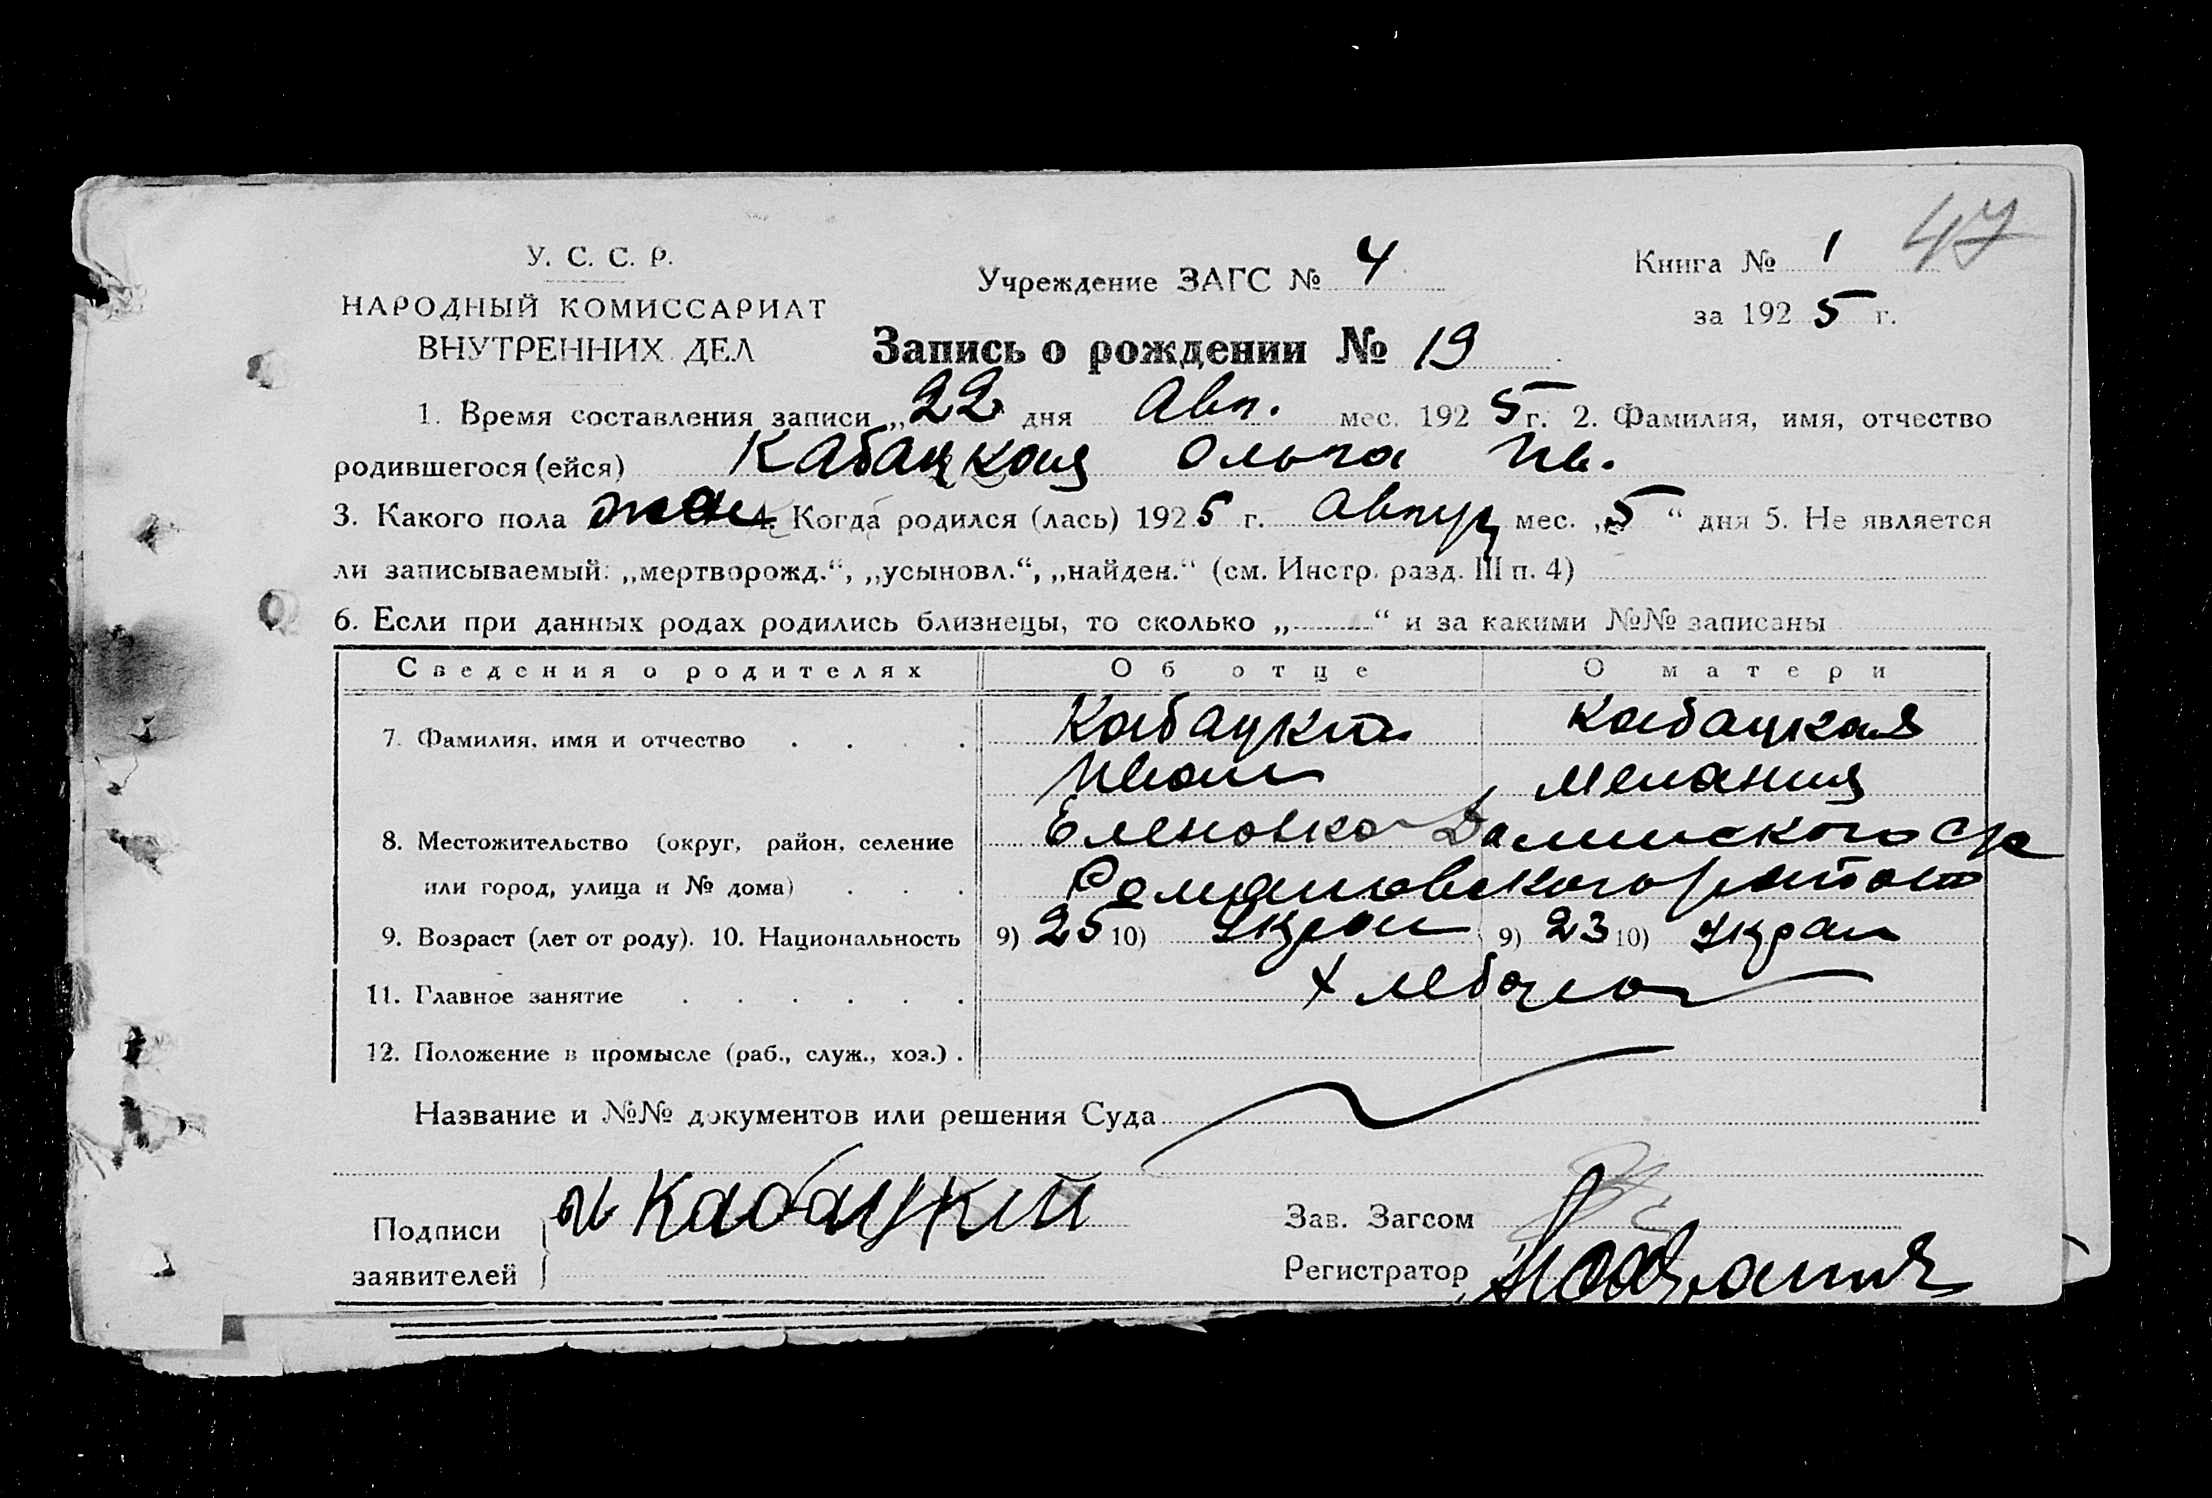 47
У. С. С. Р.
НАРОДНЫЙ КОМИССАРИАТ
ВНУТРЕННИХ ДЕЛ
Учреждение ЗАГС № 4
Книга № 1
за 1925 г.
Запись о рождении № 19
1. Время составления записи „22 дня Авг. мес. 1925 г. 2. Фамилия, имя, отчество
родившегося (ейся) Кабацкая Ольга Ив.
3. Какого пола жен. Когда родился (лась) 1925 г. Август мес. „5“ дня 5. Не является
ли записываемый: „мертворожд.“, „усыновл.“, „найден.“ (см. Инстр. разд. III п. 4)
6. Если при данных родах родились близнецы, то сколько „ “ и за какими №№ записаны
Сведения о родителях Об отце О матери
7. Фамилия, имя и отчество Кабацкий Кабацкая
Иван Мелания
8. Местожительство (округ, район, селение Еленовка
или город, улица и № дома) Романовского района
9. Возраст (лет от роду). 10. Национальность 9) 25 10) Украин 9) 23 10) Украин
11. Главное занятие Хлебороб
12. Положение в промысле (раб., служ., хоз.)
Название и №№ документов или решения Суда
Подписи
заявителей
И Кабацкий
Зав. Загсом
Регистратор